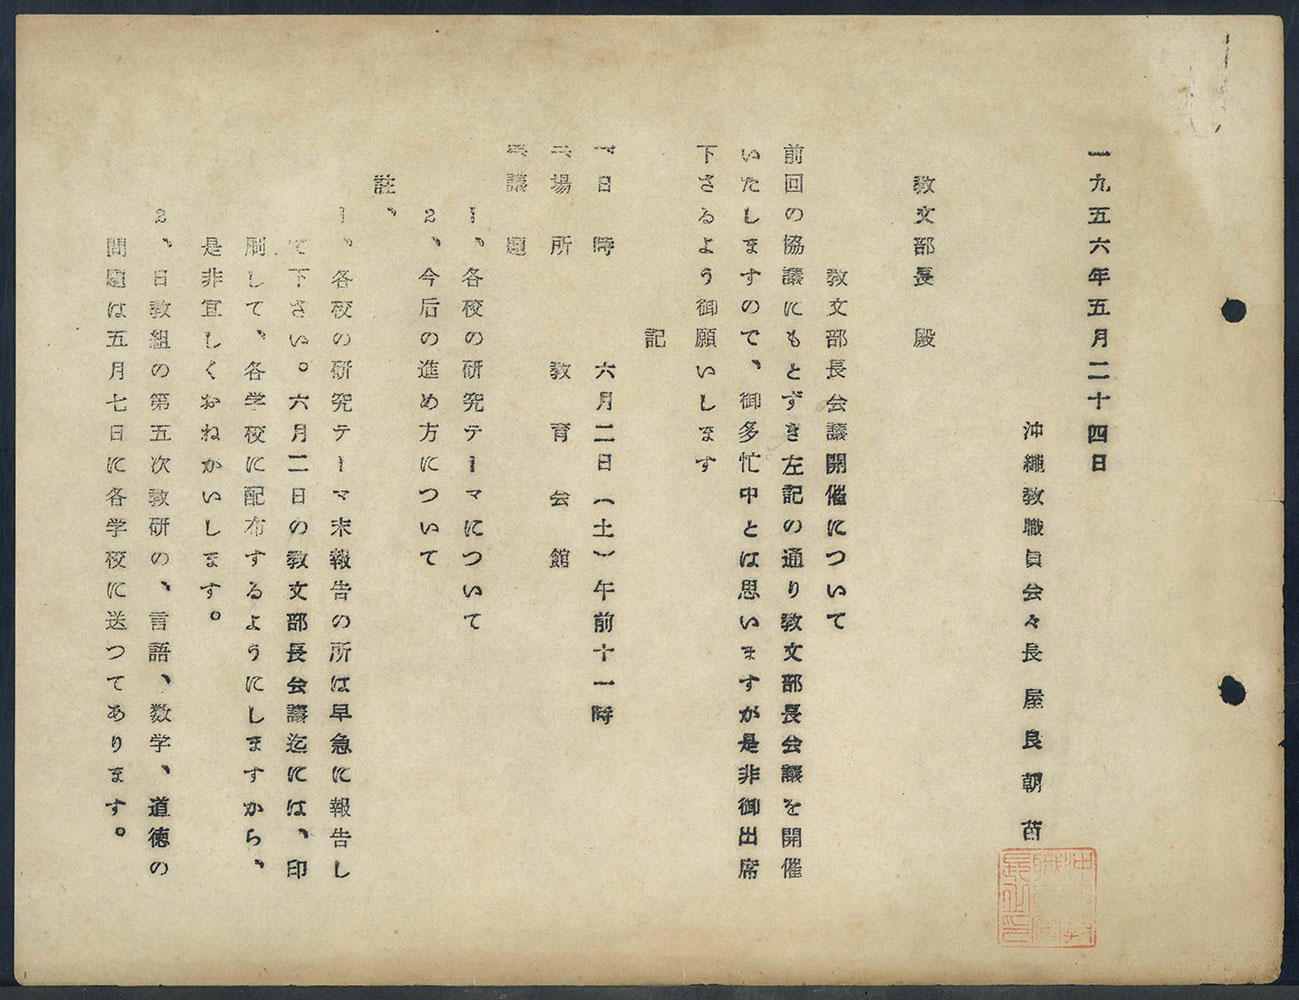 一九五六年五月二十四日
沖縄教職員会々長 屋良朝苗
教文部長 殿
教文部長会議開催について
前回の協議にもとずき左記の通り教文部長会議を開催
いたしますので、御多忙中とは思いますが是非御出席
下さるよう御願いします
記
一日 時 六月二日(土)午前十一時
二場 所 教育会館
三議 題
1、各校の研究テーマについて
2、今后の進め方について
註、
1、各校の研究テーマ末報告の所は早急に報告し
て下さい。六月二日の教文部長会議迄には、印
刷して、各学校に配布するようにしますから、
是非宜しくおねがいします。
2、日教組の第五次教研の、言語、数学、道徳の
問題は五月七日に各学校に送つてあります。